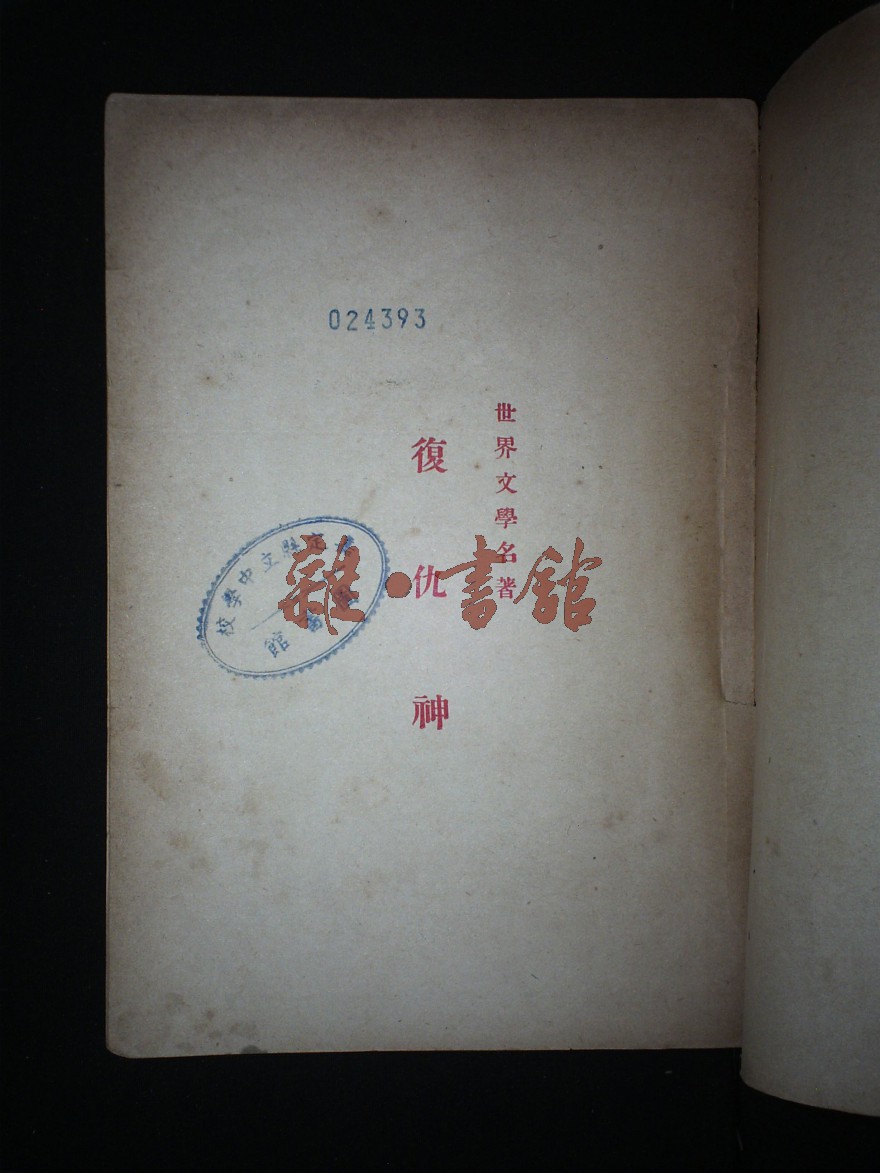 024393
世界文學名著
復仇神
定縣立中學校
圖書館
雜·書館